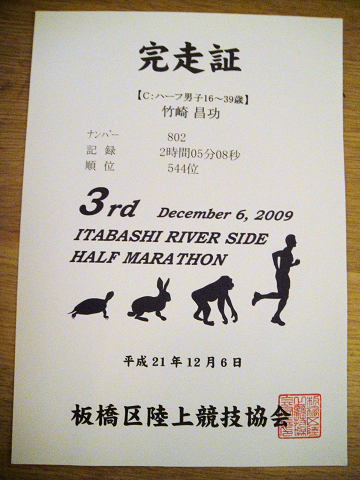 完走証
【C:ハーフ男子16～39歳】
竹崎 昌功
ナンバー 802
記録 2時間05分08秒
順位 544位
3rd December 6, 2009
ITABASHI RIVER SIDE
HALF MARATHON
平成21年12月6日
板橋区陸上競技協会